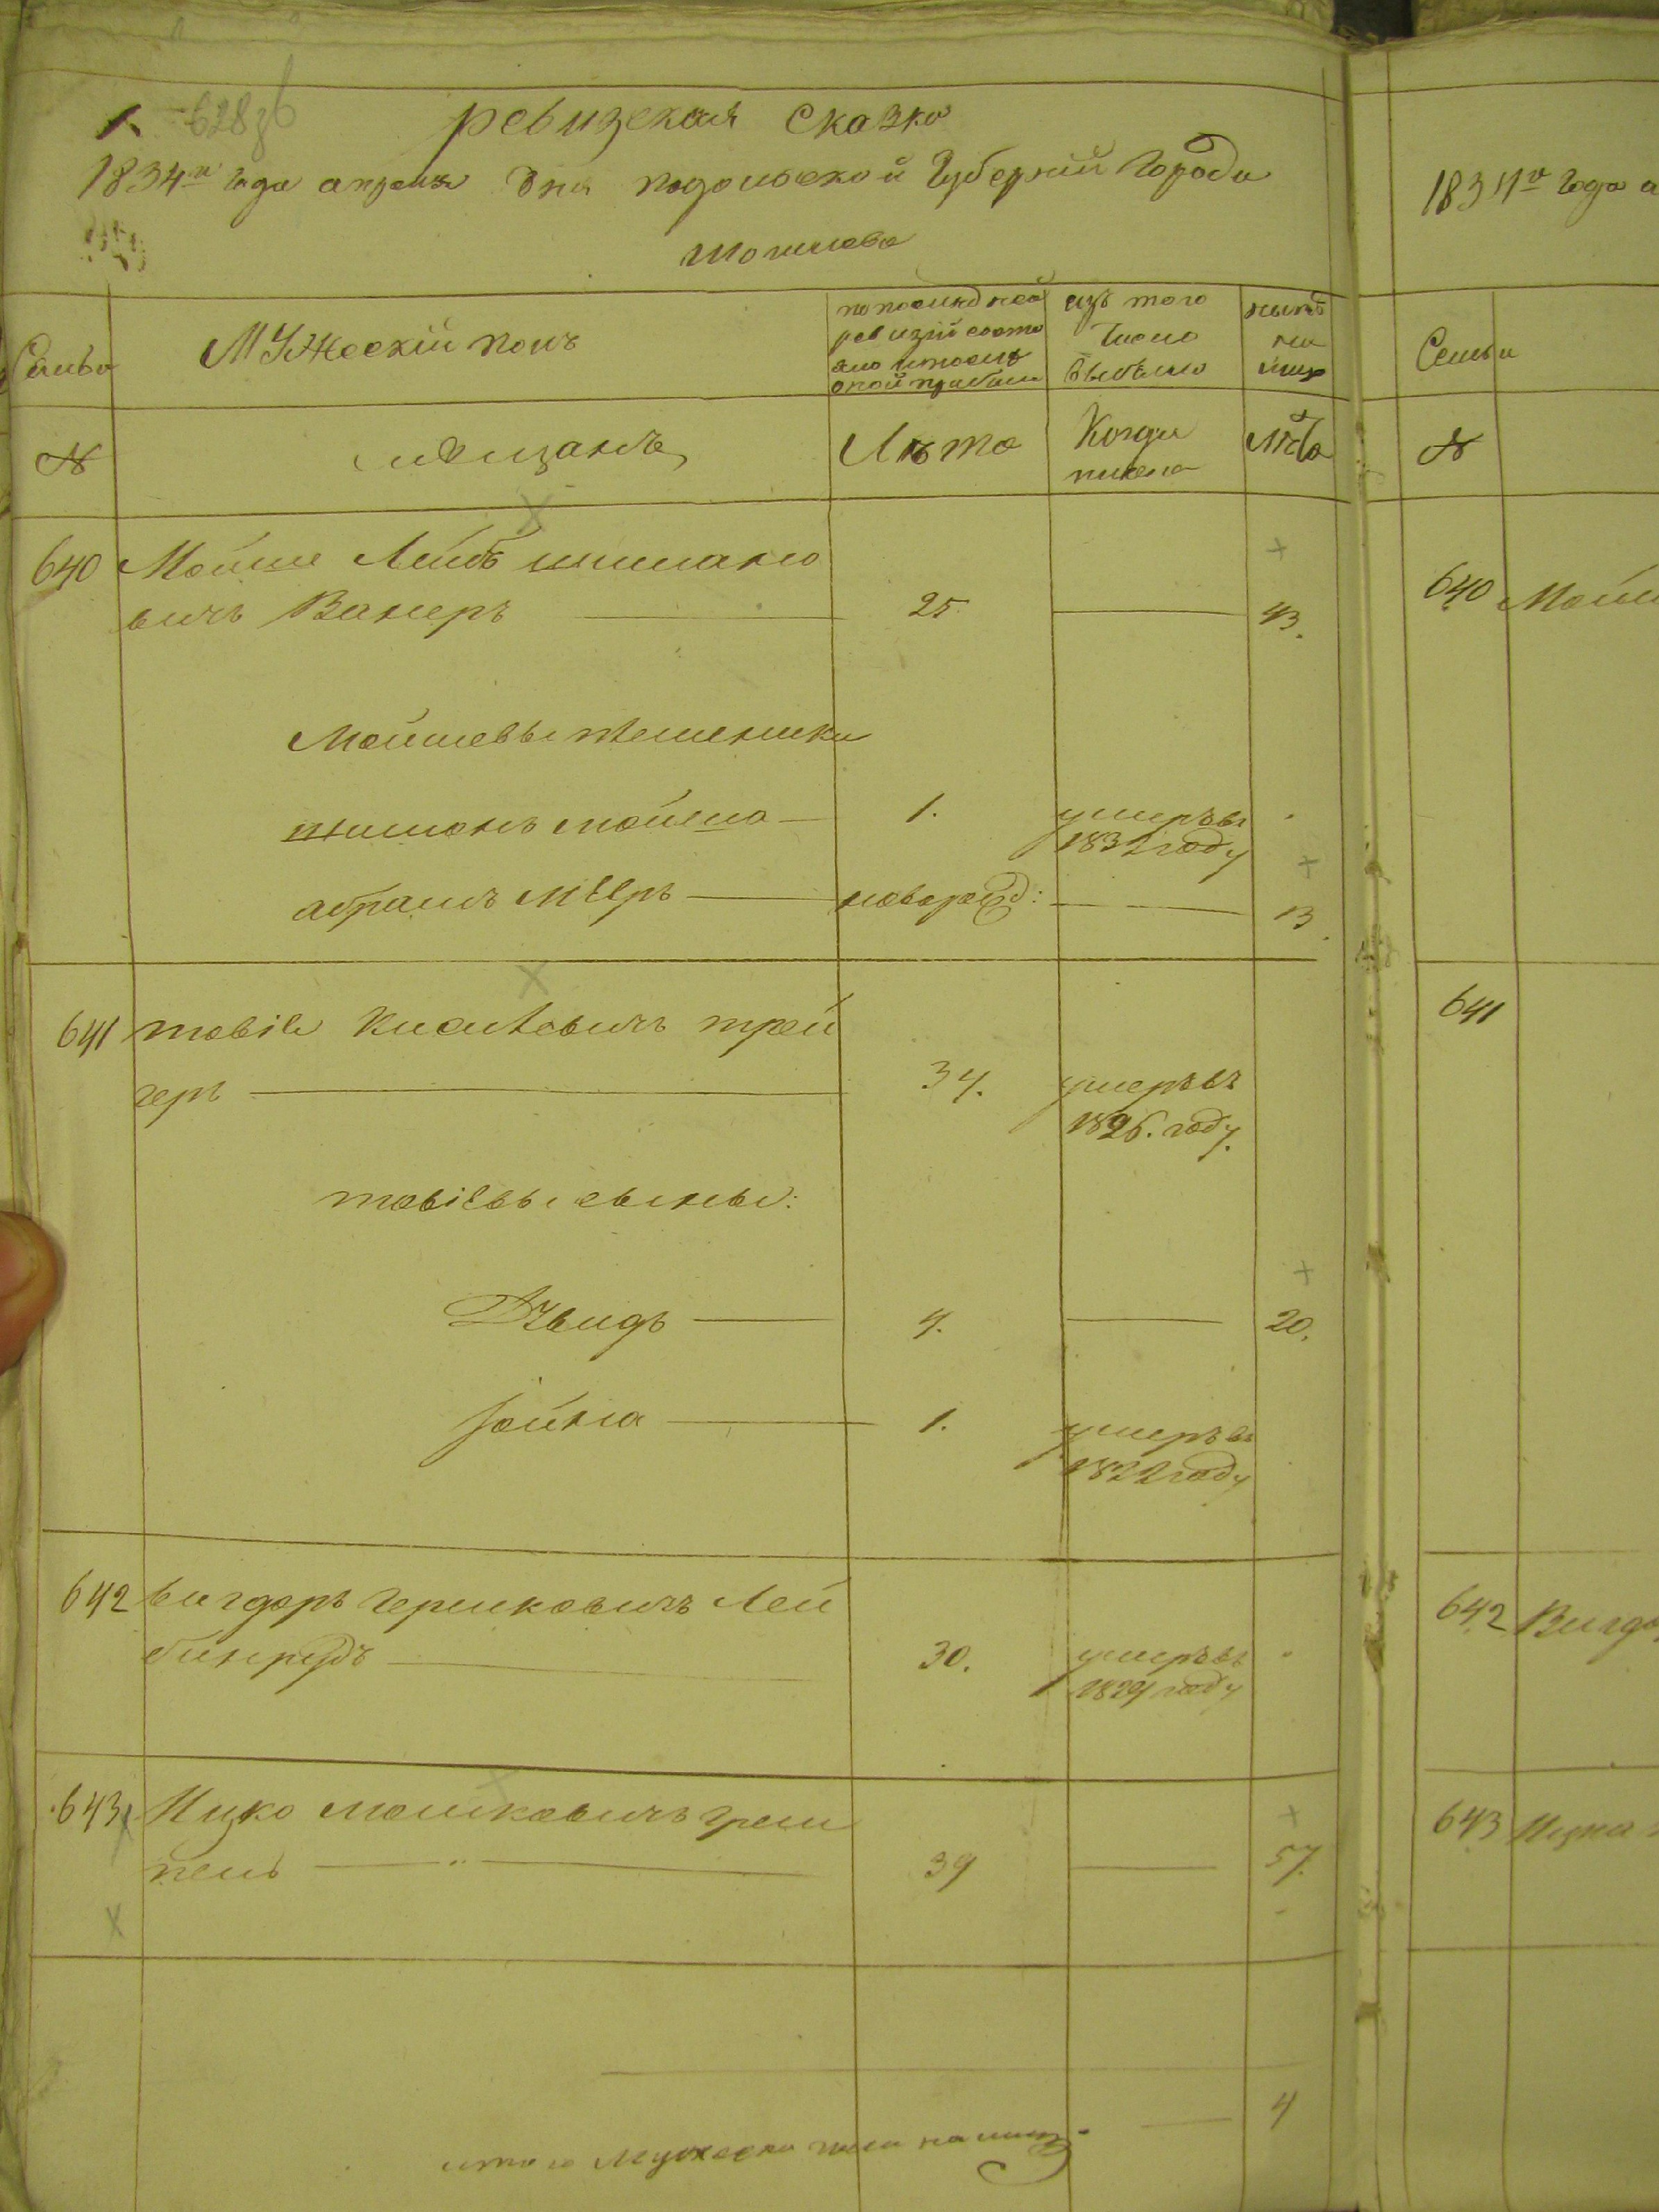 628 зв
ревизская сказка
1834го года апреля дня подольской Губерній Города
Могилева
Семьи
Мужескій полъ
по последней ревизіи состояло и после оной прибыло
изъ того числа выбыло
ныне на лицо
№
мещанъ
Лѣта
Когда именно
Лѣта
640 Мойше Лейбъ шимано
вичъ Винеръ 25. 43.
Мойшевы племеники
шимонъ мойша 1. умеръ въ
1832 году
абрамъ Мееръ новорожд: 13.
641 товія Киселевичъ трей
геръ 34. умеръ въ
1826. году.
товіевы сыны:
Давидъ 4. 20.
Іойна 1. умеръ въ
1822 году
642 вигдоръ Гершковичъ Лей
бинрудъ 30. умеръ въ
1829 году
643 Ицко мошковичъ грем
пель 39 57.
4
итого мужеска пола на лицо
1834го года а
Семьи
№
640 Мойш
641
642 Вигдо
643 Ицка